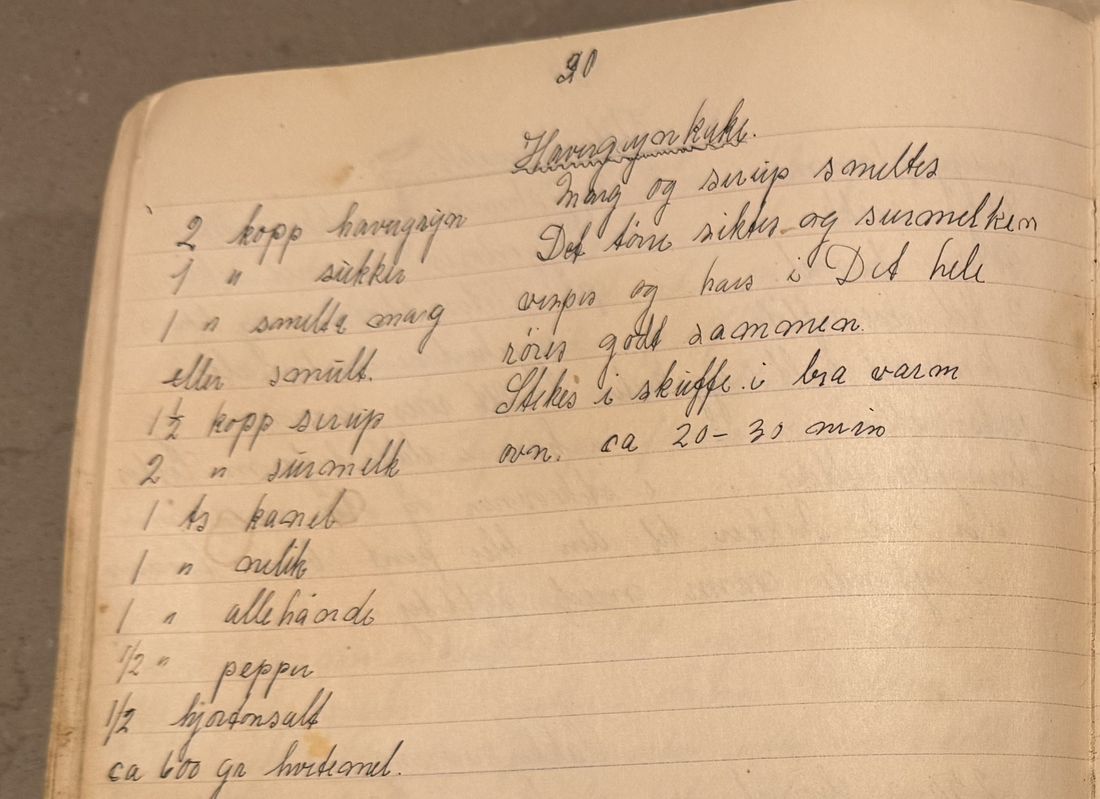 20
Havregrynkake.
2 kopp havregryn
1 " sukker
1 " smelta marg
eller smult.
1½ kopp sirup
2 " surmelk
1 ts kanel
1 " nelik
1 " allehånde
1/2 " pepper
1/2 hjortonsalt
ca 600 gr hvitemel.
Marg og sirup smeltes
Det tørre siktes og surmelken
vispes og haes i Det hele
røres godt sammen.
Stekes i skuffe i bra varm
ovn. ca 20-30 min